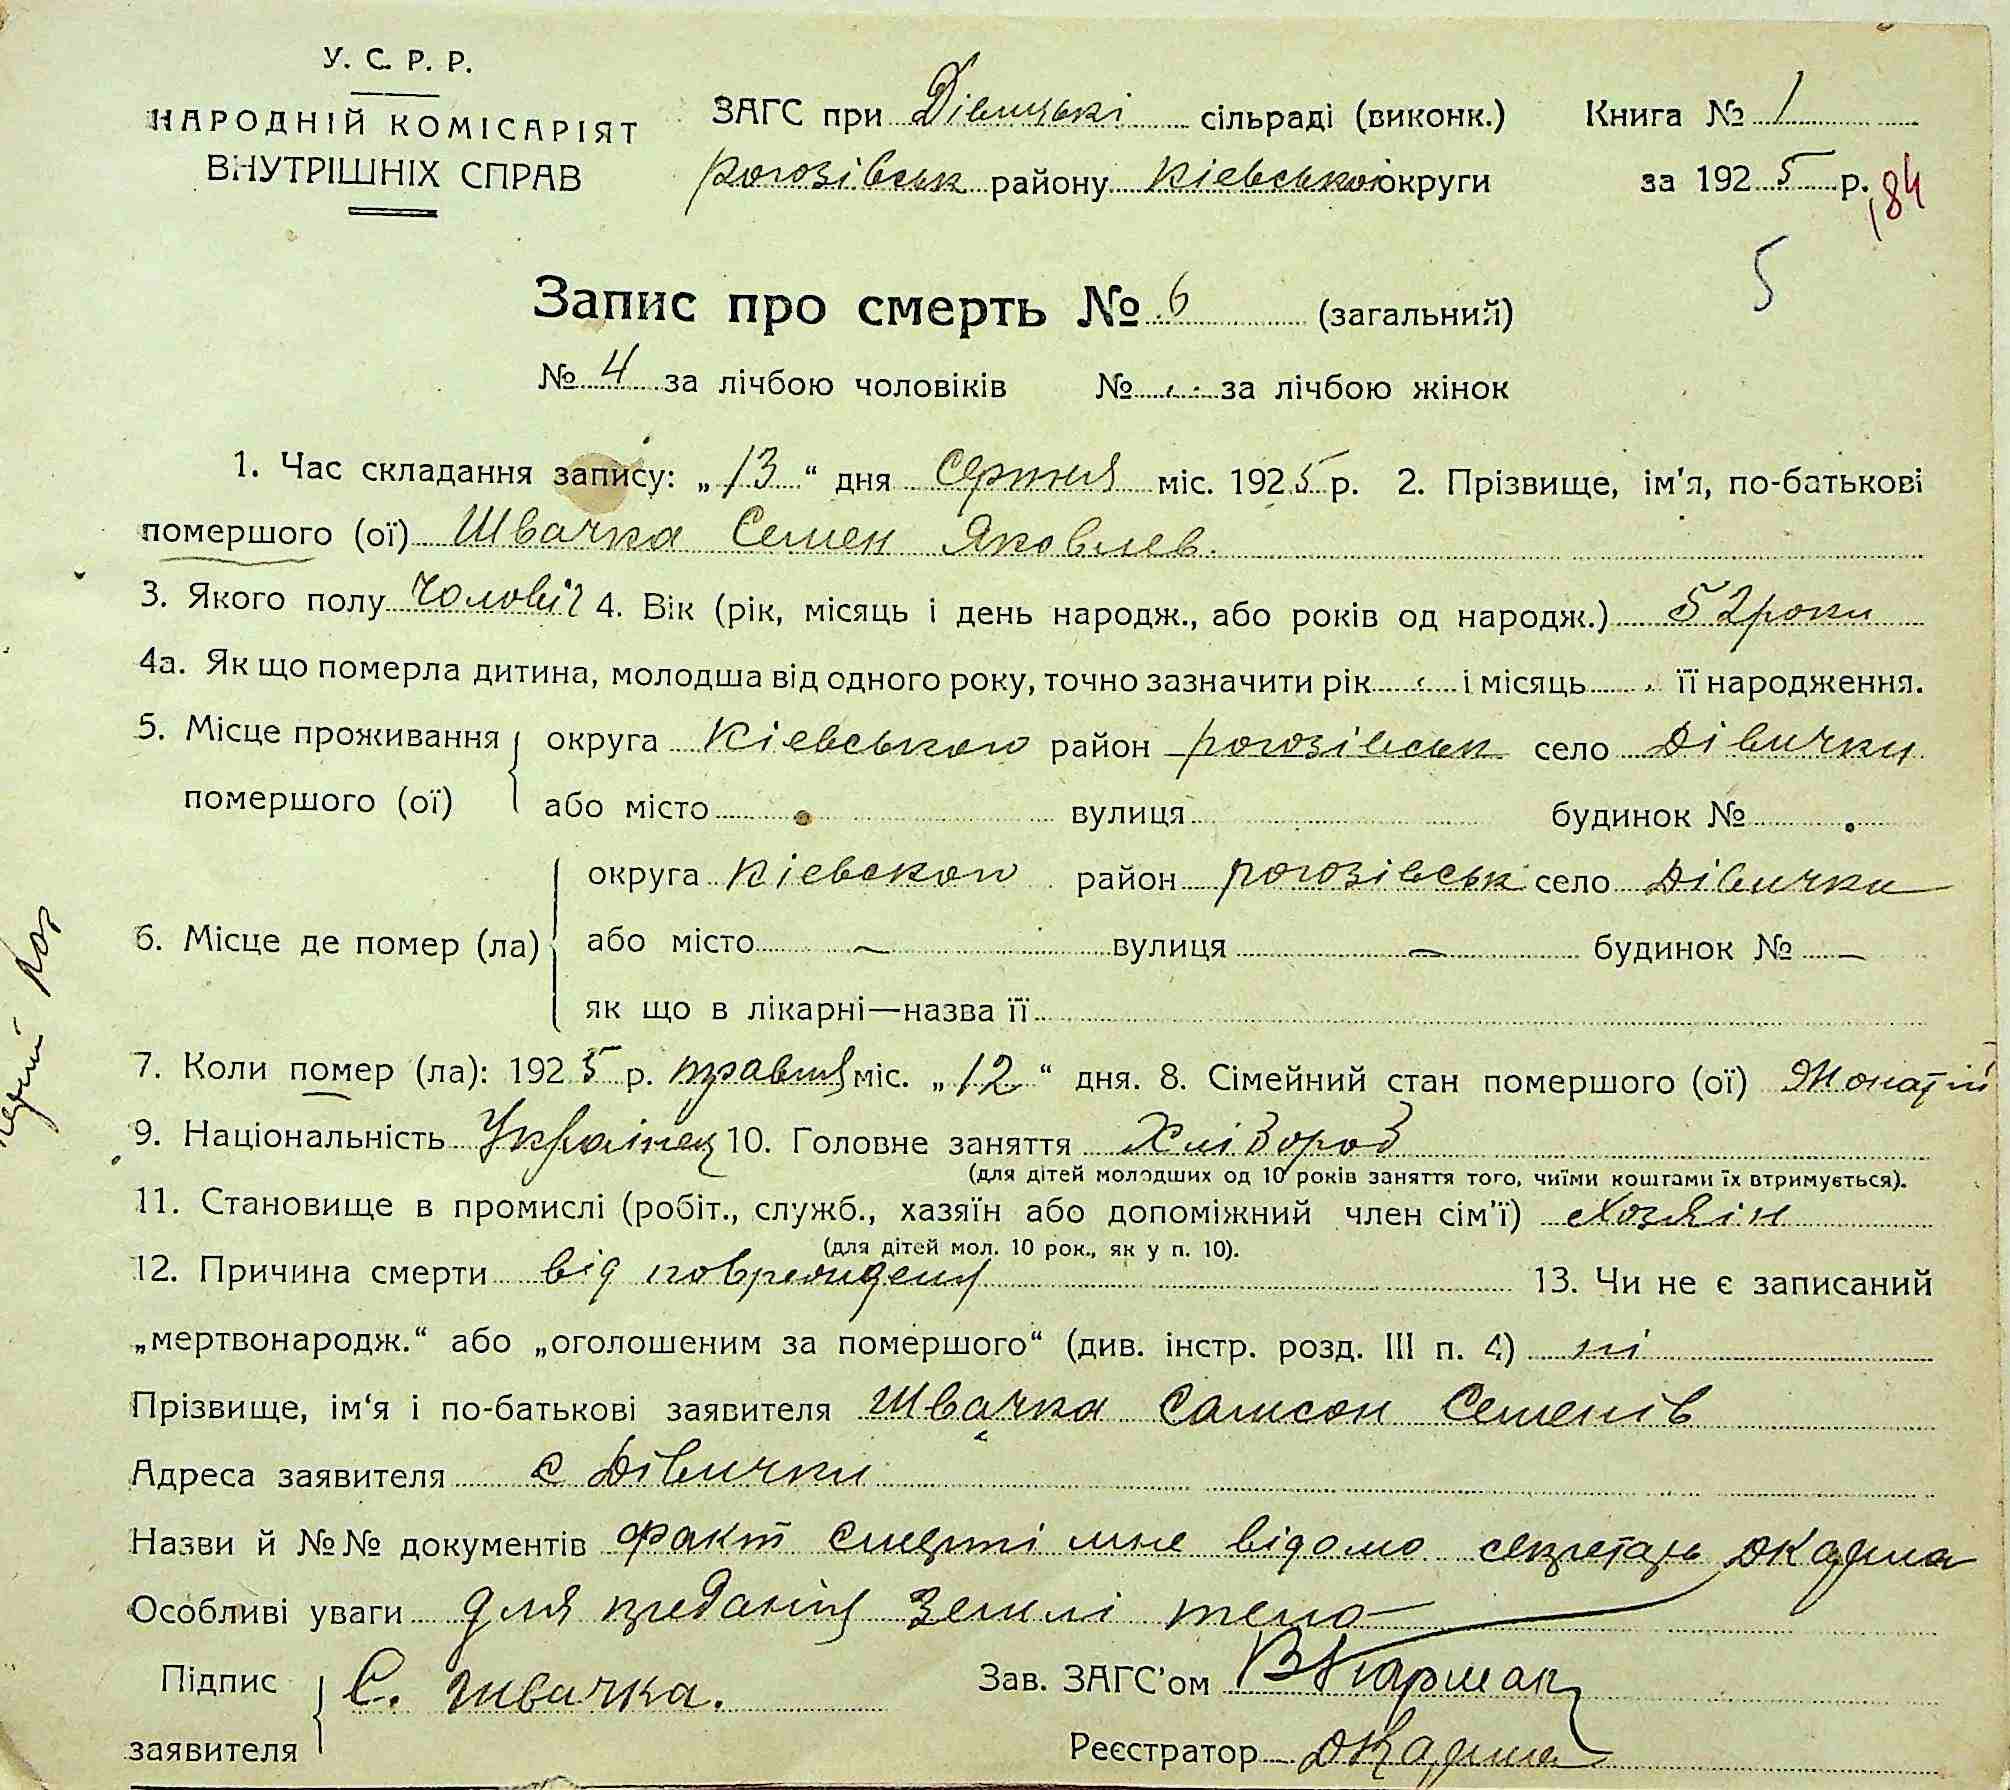 У. С. Р. Р.
НАРОДНІЙ КОМІСАРІЯТ
ВНУТРІШНІХ СПРАВ
ЗАГС при Дівичські сільраді (виконк.) Книга № 1
рогозівськ району Кіевської округи за 1925 р. 184
5
Запис про смерть № 6 (загальний)
№ 4 за лічбою чоловіків № за лічбою жінок
1. Час складання запису: „13“ дня Серпня міс. 1925 р. 2. Прізвище, ім'я, по-батькові
помершого (ої) Швачка Семен Яковлев.
3. Якого полу Чоловіч 4. Вік (рік, місяць і день народж., або років од народж.) 52 роки
4а. Як що померла дитина, молодша від одного року, точно зазначити рік і місяць її народження.
5. Місце проживання округа Кіевського район рогозівськ село Дівички
помершого (ої) або місто вулиця будинок №
округа Кіевского район рогозівськ село Дівички
6. Місце де помер (ла) або місто — вулиця — будинок № —
як що в лікарні—назва її
7. Коли помер (ла): 1925 р. травня міс. „12“ дня. 8. Сімейний стан помершого (ої) Жонатій
9. Національність Українец 10. Головне заняття Хлібороб
(для дітей молодших од 10 років заняття того, чиїми коштами їх втримується).
11. Становище в промислі (робіт., служб., хазяїн або допоміжний член сім'ї) Хозяін
(для дітей мол. 10 рок., як у п. 10).
12. Причина смерти від повреждения 13. Чи не є записаний
„мертвонародж.“ або „оголошеним за помершого“ (див. інстр. розд. III п. 4) ні
Прізвище, ім'я і по-батькові заявителя Швачка Самсон Семенів
Адреса заявителя с Дівички
Назви й №№ документів Факт смерти мне відомо секретарь
Особливі уваги для преданія землі тела
Підпис С. Швачка. Зав. ЗАГС'ом
заявителя Реєстратор